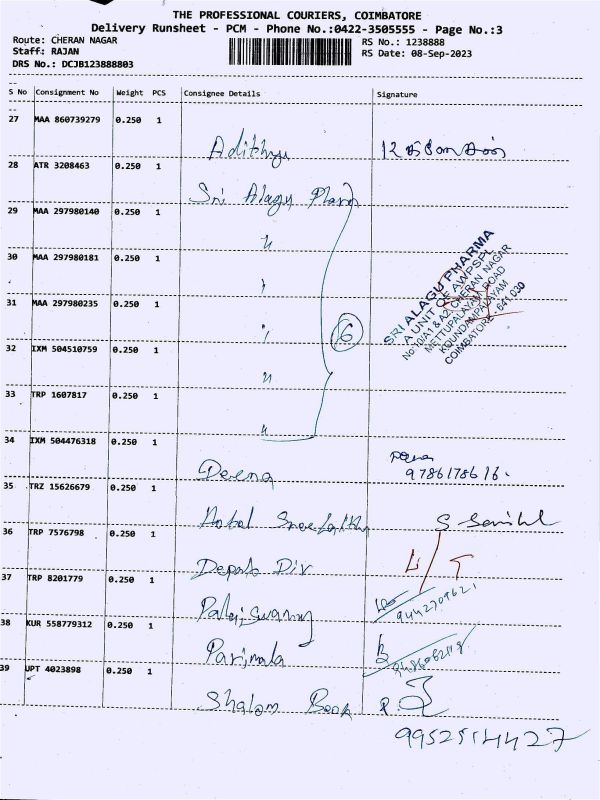 THE PROFESSIONAL COURIERS, COIMBATORE
Delivery Runsheet - PCM - Phone No.:0422-3505555 - Page No.:3
Route: CHERAN NAGAR
RS No.: 1238888
Staff: RAJAN
RS Date: 08-Sep-2023
DRS No.: DCJB123888803
S No Consignment No Weight PCS Consignee Details Signature
27 MAA 860739279 0.250 1
Adithya
28 ATR 3208463 0.250 1
Sri Alagu
29 MAA 297980140 0.250 1
"
30 MAA 297980181 0.250 1
"
31 MAA 297980235 0.250 1
" 6
SRI ALAGU PHARMA
A UNIT OF AWPSPL
No 10/A1 & A2, CHERAN NAGAR
METTUPALAYAM ROAD
KOUNDAMPALAYAM
COIMBATORE - 641 030
32 IXM 504510759 0.250 1
"
33 TRP 1607817 0.250 1
"
34 IXM 504476318 0.250 1
Deena 9786178616.
35 TRZ 15626679 0.250 1
36 TRP 7576798 0.250 1
37 TRP 8201779 0.250 1
38 KUR 558779312 0.250 1
Parimala
39 JPT 4023898 0.250 1
Shalom
9952514427